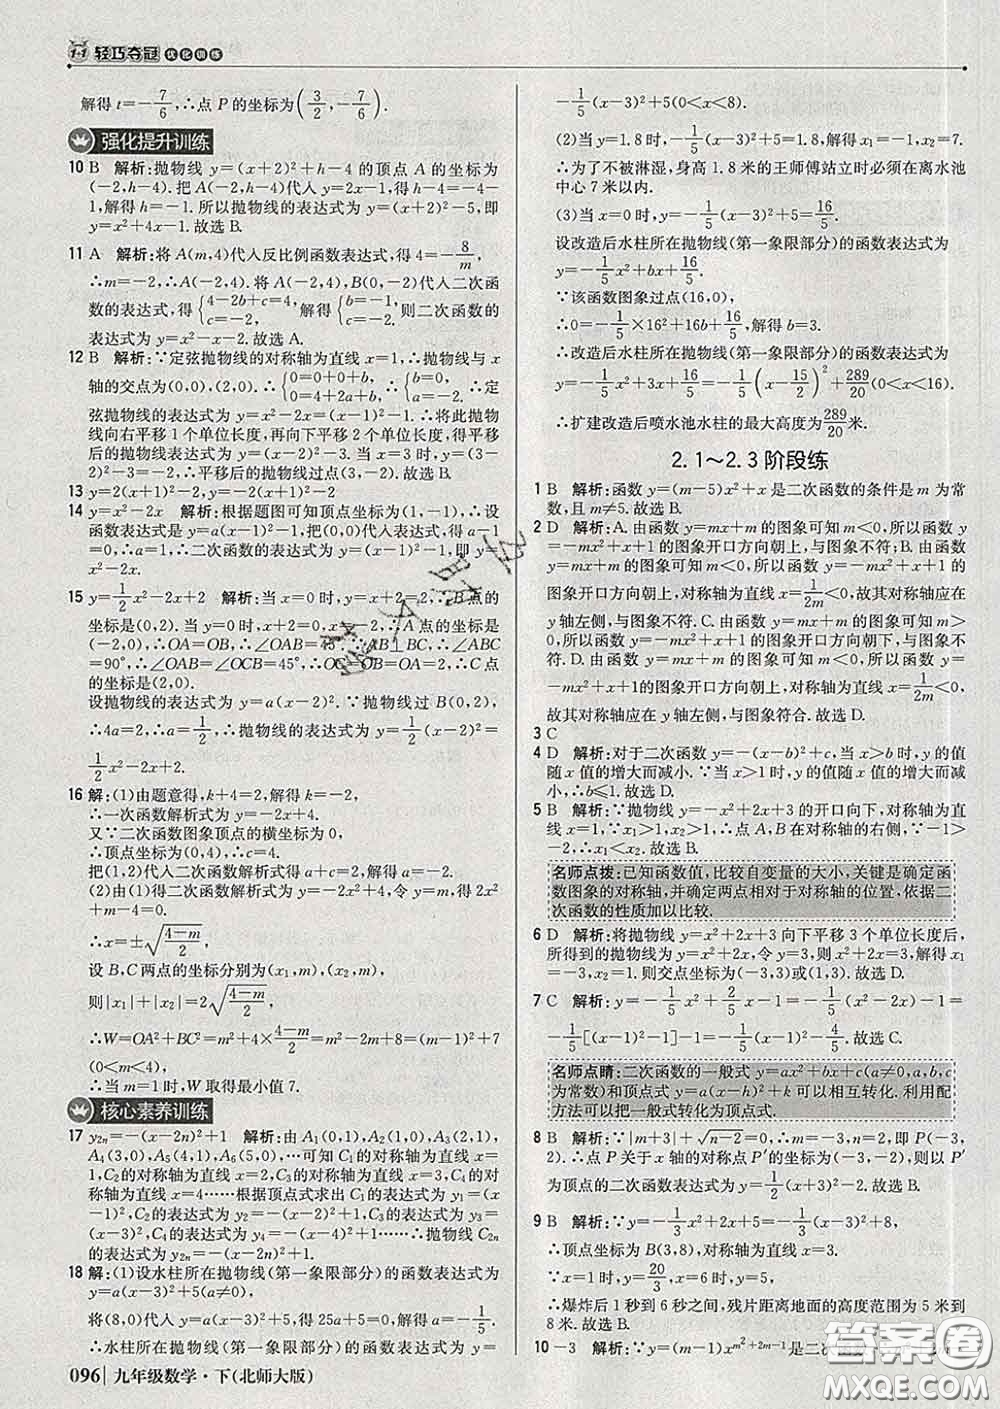 1+1 轻巧夺冠 优化训练
解得 t=-7/6,∴点 P 的坐标为(3/2,-7/6).
强化提升训练
10 B 解析:抛物线 y=(x+2)²+h-4 的顶点 A 的坐标为
(-2,h-4). 把 A(-2,h-4)代入 y=2x-1,得 h-4=-4-
1,解得 h=-1. 所以抛物线的表达式为 y=(x+2)²-5,即
y=x²+4x-1. 故选 B.
11 A 解析:将 A(m,4)代入反比例函数表达式,得 4=-8/m,
∴m=-2,∴A(-2,4). 将 A(-2,4),B(0,-2)代入二次函
数的表达式,得{4-2b+c=4, c=-2, 解得{b=-1, c=-2, 则二次函数的
表达式为 y=x²-x-2. 故选 A.
12 B 解析:∵定弦抛物线的对称轴为直线 x=1,抛物线与 x
轴的交点为(0,0),(2,0). ∴{0=0+0+b, 0=4+2a+b, ∴{b=0, a=-2. ∴定
弦抛物线的表达式为 y=x²-2x=(x-1)²-1. ∴将此抛物
线向右平移 1 个单位长度,再向下平移 2 个单位长度,得平移
后的抛物线表达式为 y=(x-2)²-3. 当 x=3 时,y=(3-
2)²-3=-2,∴平移后的抛物线过点(3,-2),故选 B.
13 y=2(x+1)²-2 y=-2(x-1)²-2
14 y=x²-2x 解析:根据题图可知顶点坐标为(1,-1),∴设
函数表达式是 y=a(x-1)²-1,把(0,0)代入表达式,得 a-1=
0,解得 a=1,∴二次函数的表达式为 y=(x-1)²-1,即 y=
x²-2x.
15 y=1/2x²-2x+2 解析:当 x=0 时,y=x+2=2,∴B 点的
坐标是(0,2). 当 y=0 时,x+2=0,x=-2,∴A 点的坐标是
(-2,0),∴OA=OB,∴∠OAB=45°. ∵AB⊥BC,∴∠ABC
=90°,∴∠OCB=∠OAB=45°,∴OC=OB=OA=2,∴C 点
的坐标是(2,0).
设抛物线的表达式为 y=a(x-2)². ∵抛物线过 B(0,2),
∴4a=2,∴a=1/2,∴抛物线的表达式为 y=1/2(x-2)²=
1/2x²-2x+2.
16 解:(1)由题意得,k+4=2,解得 k=-2,
∴一次函数解析式为 y=-2x+4.
又∵二次函数图象顶点的横坐标为 0,
∴顶点坐标为(0,4),∴c=4.
把(1,2)代入二次函数解析式得 a+c=2,解得 a=-2.
(2)由(1)得二次函数解析式为 y=-2x²+4,令 y=m,得 2x²
+m-4=0,
∴x=±√((4-m)/2),
设 B,C 两点的坐标分别为(x₁,m),(x₂,m),
则|x₁|+|x₂|=2√((4-m)/2),
∴W=OA²+BC²=m²+4×(4-m)/2=m²-2m+8=(m-1)²+7
(0<m<4).
∴当 m=1 时,W 取得最小值 7.
核心素养训练
17 y₂ₙ=-(x-2n)²+1 解析:由 A₁(0,1),A₂(1,0),A₃(2,1),
A₄(3,0),A₅(4,1),A₆(5,0),…可知 C₁ 的对称轴为直线 x=1,
C₂ 的对称轴为直线 x=2,C₃ 的对称轴为直线 x=3,C₄ 的对
称轴为直线 x=4……根据顶点式求出 C₁ 的表达式为 y₁=(x
-1)²,C₂ 的表达式为 y₂=-(x-2)²+1,C₃ 的表达式为 y₃=
(x-3)²,C₄ 的表达式为 y₄=-(x-4)²+1……∴抛物线 C₂ₙ
的表达式为 y₂ₙ=-(x-2n)²+1.
18 解:(1)设水柱所在抛物线(第一象限部分)的函数表达式为
y=a(x-3)²+5(a≠0),
将(8,0)代入 y=a(x-3)²+5,得 25a+5=0,解得 a=-1/5,
∴水柱所在抛物线(第一象限部分)的函数表达式为 y=
096 九年级数学·下(北师大版)
-1/5(x-3)²+5(0<x<8).
(2)当 y=1.8 时,-1/5(x-3)²+5=1.8,解得 x₁=-1,x₂=7.
∴为了不被淋湿,身高 1.8 米的王师傅站立时必须在离水池
中心 7 米以内.
(3)当 x=0 时,y=-1/5(x-3)²+5=16/5.
设改造后水柱所在抛物线(第一象限部分)的函数表达式为
y=-1/5x²+bx+16/5,
∵该函数图象过点(16,0),
∴0=-1/5×16²+16b+16/5,解得 b=3.
∴改造后水柱所在抛物线(第一象限部分)的函数表达式为
y=-1/5x²+3x+16/5=-1/5(x-15/2)²+289/20(0<x<16).
∴扩建改造后喷水池水柱的最大高度为289/20米.
2.1～2.3 阶段练
1 B 解析:函数 y=(m-5)x²+x 是二次函数的条件是 m 为常
数,且 m≠5. 故选 B.
2 D 解析:A. 由函数 y=mx+m 的图象可知 m<0,所以函数 y
=-mx²+x+1 的图象开口方向朝上,与图象不符;B. 由函数
y=mx+m 的图象可知 m<0,所以函数 y=-mx²+x+1 的
图象开口方向朝上,对称轴为直线 x=1/2m<0,故其对称轴应在
y 轴左侧,与图象不符. C. 由函数 y=mx+m 的图象可知 m>
0,所以函数 y=-mx²+x+1 的图象开口方向朝下,与图象不
符. D. 由函数 y=mx+m 的图象可知 m<0,所以函数 y=
-mx²+x+1 的图象开口方向朝上,对称轴为直线 x=1/2m<0,
故其对称轴在 y 轴左侧,与图象符合. 故选 D.
3 C
4 D 解析:对于二次函数 y=-(x-b)²+c,当 x>b 时,y 的值
随 x 值的增大而减小. ∵当 x>1 时,y 的值随 x 值的增大而减
小,∴b≤1. 故选 D.
5 B 解析:∵抛物线 y=-x²+2x+3 的开口向下,对称轴为直
线 x=1,∵x₁>1,x₂>1,∴点 A,B 在对称轴的右侧,∵-1>
-2,∴x₁<x₂. 故选 B.
名师点拨:已知函数值,比较自变量的大小,关键是确定函
数图象的对称轴,并确定两点相对于对称轴的位置,依据二
次函数的性质加以比较.
6 D 解析:将抛物线 y=x²+2x+3 向下平移 3 个单位长度后,
所得到的抛物线为 y=x²+2x,令 y=3,得 x²+2x=3,解得 x₁
=-3,x₂=1. 则交点坐标为(-3,3)或(1,3). 故选 D.
7 C 解析:y=-1/5x²+2/5x-1=-1/5(x²-2x)-1=
-1/5[(x-1)²-1]-1=-1/5(x-1)²-4/5. 故选 C.
名师点睛:二次函数的一般式 y=ax²+bx+c(a≠0,a,b,c
为常数)和顶点式 y=a(x-h)²+k 可以相互转化. 利用配
方法可以把一般式转化为顶点式.
8 B 解析:∵|m+3|+√(n-2)=0,∴m=-3,n=2,即 P(-3,
2). ∴点 P 关于 x 轴的对称点 P′的坐标为(-3,-2),∴以 P′
为顶点的二次函数表达式为 y=1/2(x+3)²-2. 故选 B.
9 B 解析:∵y=-1/3x²+2x+5=-1/3(x-3)²+8,
∴顶点坐标为 B(3,8),对称轴为直线 x=3.
∵x=1 时,y=20/3,x=6 时,y=5,
∴爆炸后 1 秒到 6 秒之间,残片距离地面的高度范围为 5 米到
8 米. 故选 B.
10 -3 解析:∵y=(m-1)x^(m²+2m-1) 是二次函数
答案圈
MXQE.COM